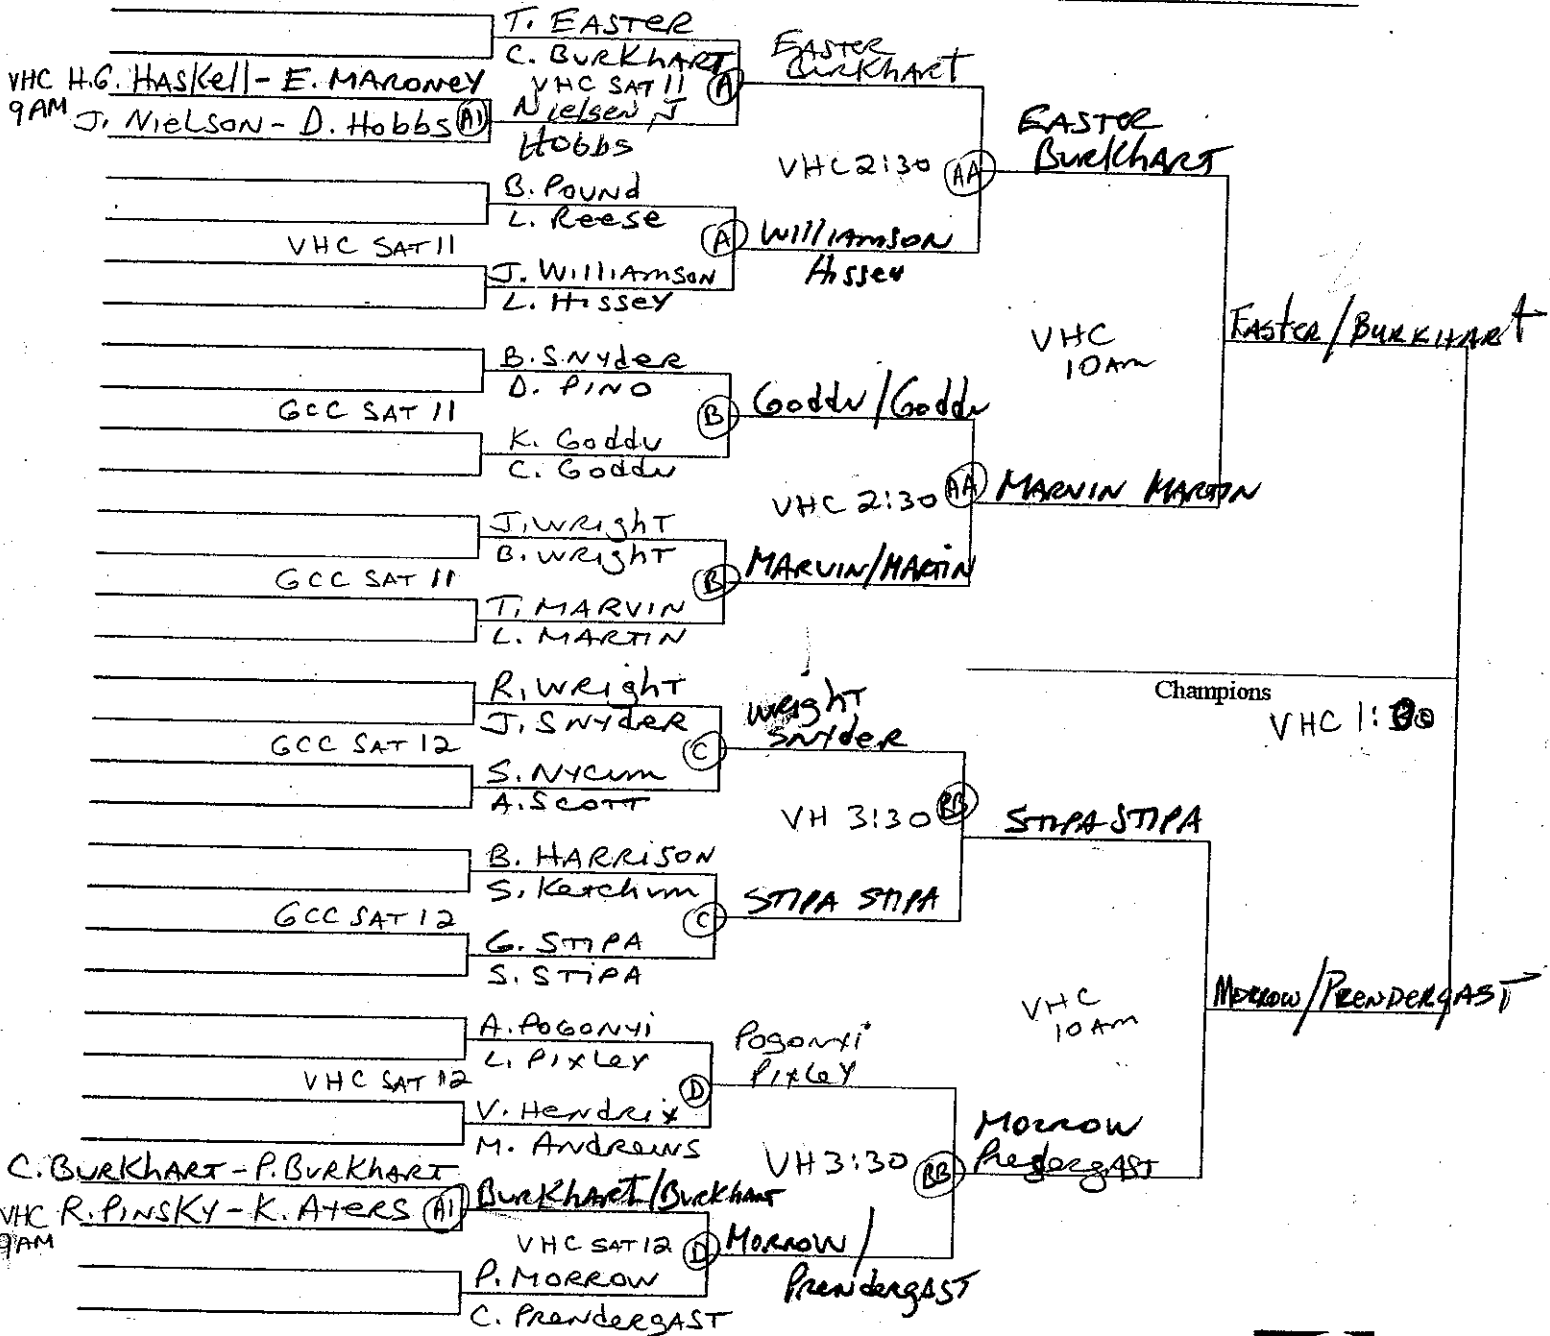 T. EASTER
C. BURKHART
VHC H.G. HASKell - E. MARONEY
9AM J. NIELSON - D. HOBBS A1
VHC SAT 11 A
Nielsen, J
HOBBS
EASTER
BURKHART
B. POUND
L. Reese
VHC SAT 11
J. WILLIAMSON
L. HISSEY
A WILLIAMSON
HISSEY
VHC 2:30 AA
EASTER
BURKHART
B. SNYDER
D. PINO
GCC SAT 11
K. Goddu
C. Goddu
B Goddu/Goddu
J. WRIGHT
B. WRIGHT
GCC SAT 11
T. MARVIN
L. MARTIN
B MARVIN/MARTIN
VHC 2:30 AA MARVIN MARTIN
VHC
10AM
EASTER/BURKHART
R. WRIGHT
J. SNYDER
GCC SAT 12
S. NYCUM
A. SCOTT
C
WRIGHT
SNYDER
B. HARRISON
S. Ketchum
GCC SAT 12
G. STIPA
S. STIPA
C STIPA STIPA
VH 3:30 BB STIPA STIPA
Champions
VHC 1:
A. POGONYI
L. PIXLEY
VHC SAT 12
V. Hendrix
M. ANDREWS
D
POGONYI
PIXLEY
C. BURKHART - P. BURKHART
VHC R. PINSKY - K. AYERS A1
9AM
BURKHART/BURKHART
VHC SAT 12 D
P. MORROW
C. PRENDERGAST
MORROW/
PRENDERGAST
VH 3:30 BB
MORROW
PREDERGAST
VHC
10AM
MORROW/PRENDERGAST